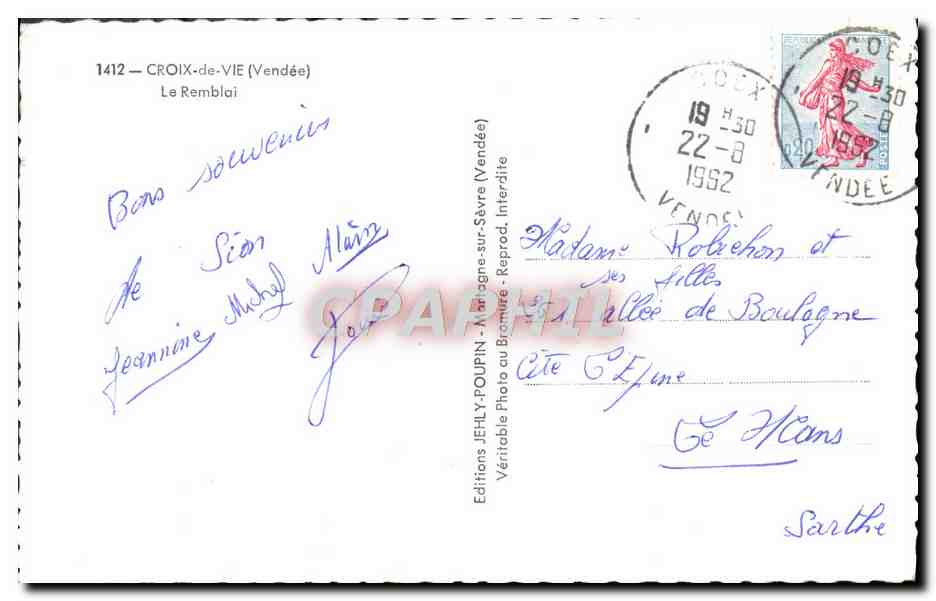 1412 — CROIX-de-VIE (Vendée)
Le Remblai
Bons souvenirs
de Sion
Jeannine Michel Alain
Editions JEHLY-POUPIN - Mortagne-sur-Sèvre (Vendée)
Véritable Photo au Bromure - Reprod. Interdite
COEX
19 H 30
22-8
1962
VENDEE
COEX
19 H 30
22-8
1962
VENDEE
0,20
POSTES
Madame Robichon et
ses filles
allée de Boulogne
Cité L'Epine
Le Mans
Sarthe
CPAPHIL